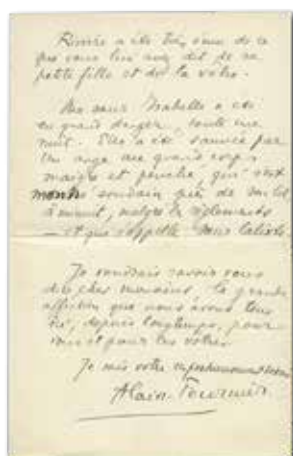 Rivière a été très ému de ce
que vous lui avez dit de sa
petite fille et de la vôtre.
Ma sœur Isabelle a été
en grand danger, toute une
nuit. Elle a été sauvée par
un ange au grand corps
maigre et penché, qui s'est
montré soudain près de son lit
à minuit, malgré les règlements
— et que s'appelle
Je voudrais savoir vous
dire la grande
affection que nous avons tous
ici, depuis longtemps, pour
vous et pour les vôtres.
Je suis votre
Alain-Fournier